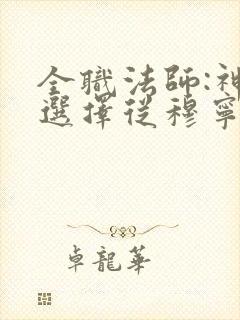 全職法師:神
選擇從穆寧
卓龍華